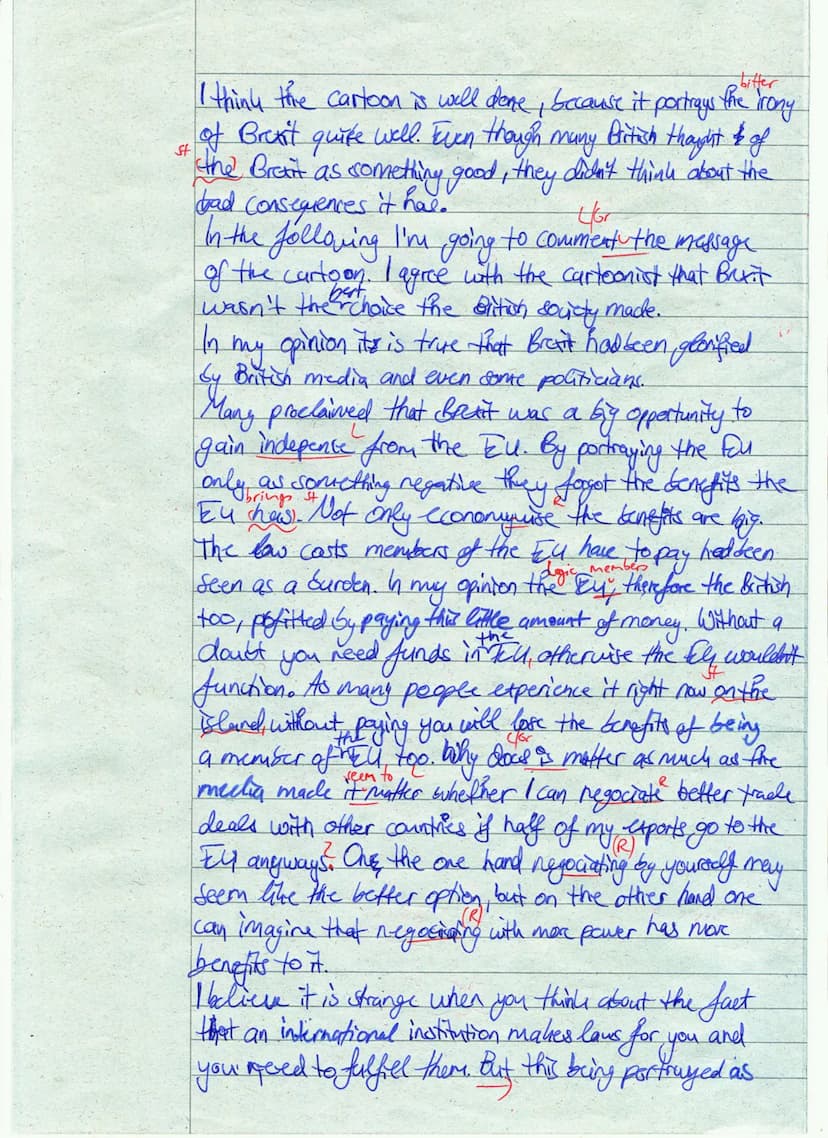 bitter
I think the cartoon is well done, because it portrays the irony
of Brexit quite well. Even though many British thought of
st
(the) Brexit as something good, they didn't think about the
bad consequences it has.
L/Gr
In the following I'm going to comment the message
of the cartoon. I agree with the cartoonist that Brexit
best
wasn't the choice the British society made.
In my opinion it is true that Brexit had been glorified
by British media and even some politicians.
Many proclaimed that Brexit was a big opportunity to
L
gain indepence from the EU. By portraying the EU
only as something negative they forgot the benefits the
brings st R
EU (has). Not only economywise the benefits are big.
The low costs members of the EU have to pay had been
logic members
seen as a burden. In my opinion the EU, therefore the British
too, profitted by paying this little amount of money. Without a
the
doubt you need funds in EU, otherwise the EU wouldn't
st
function. As many people experience it right now on the
island, without paying you will lose the benefits of being
the L/Gr
a member of EU, too. Why does is matter as much as the
seem to L R
media made it matter whether I can negociate better trade
deals with other countries if half of my exports go to the
? (R)
EU anyways. One the one hand negociating by yourself may
seem like the better option, but on the other hand one
(R)
can imagine that negociating with more power has more
benefits to it.
I believe it is strange when you think about the fact
that an international institution makes laws for you and
you need to fulfill them. But this being portrayed as